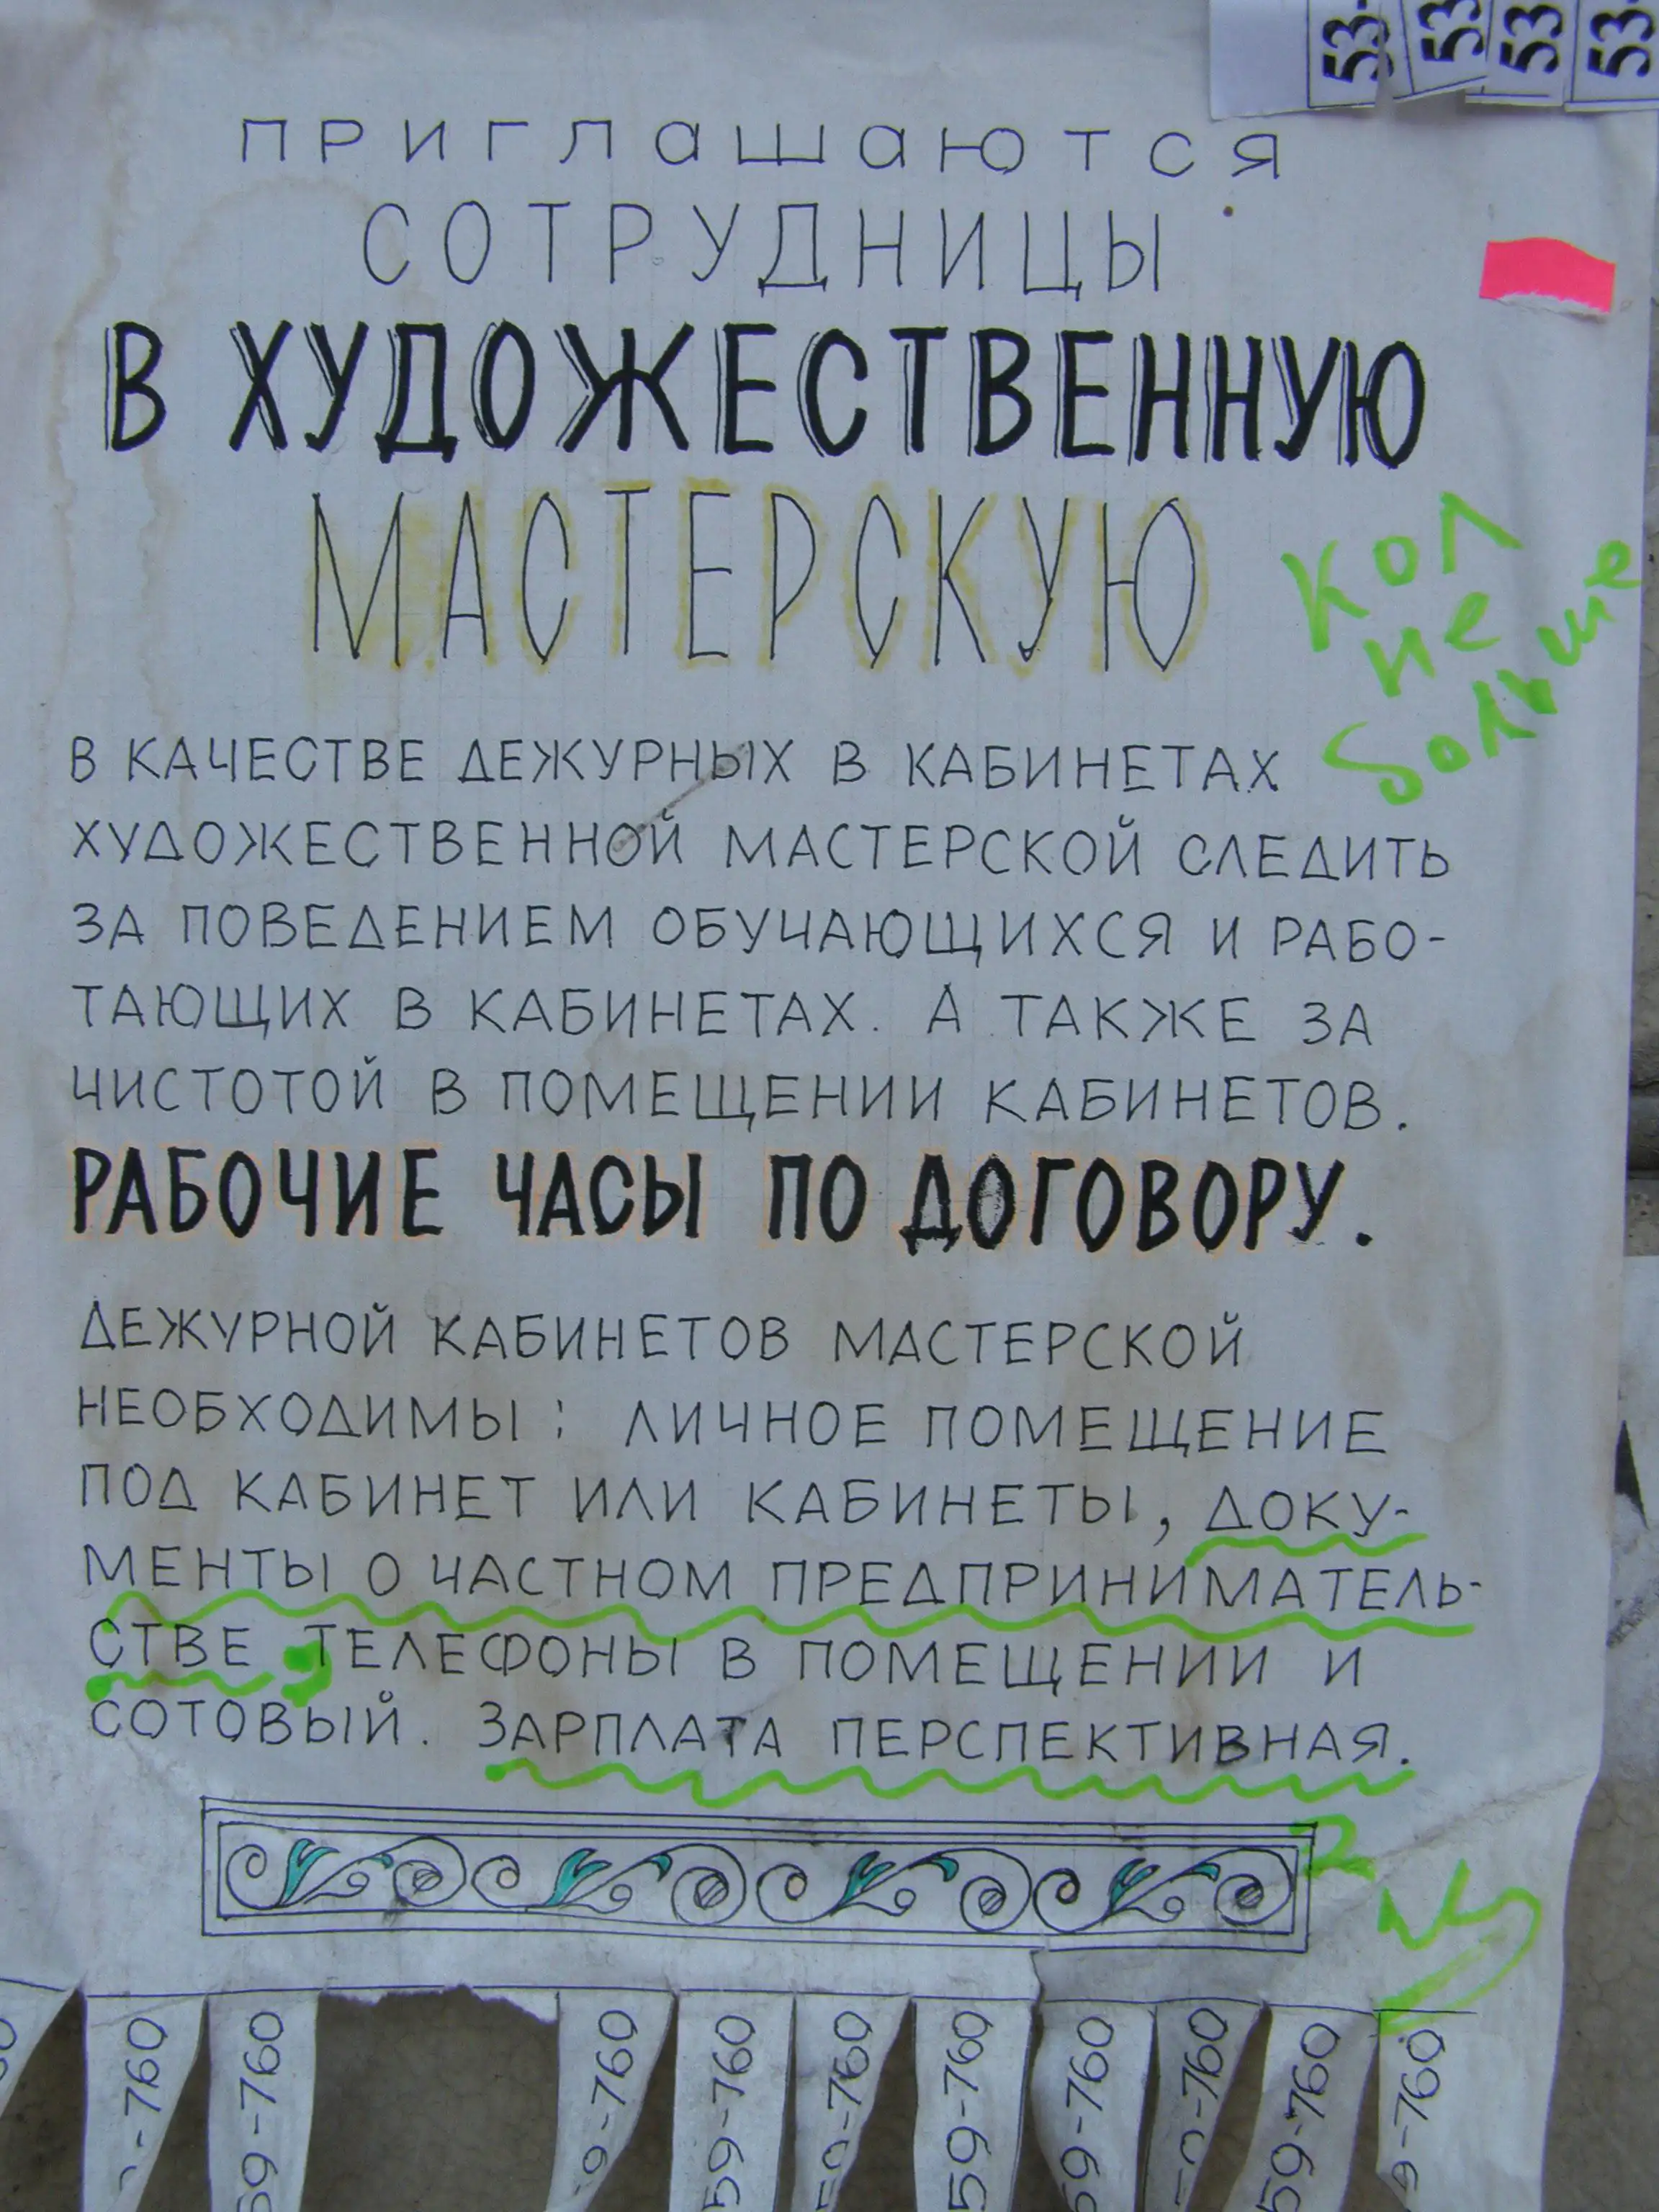 53-
53
53
53
приглашаются
СОТРУДНИЦЫ
В ХУДОЖЕСТВЕННУЮ
МАСТЕРСКУЮ
кол
не
больше
В КАЧЕСТВЕ ДЕЖУРНЫХ В КАБИНЕТАХ
ХУДОЖЕСТВЕННОЙ МАСТЕРСКОЙ СЛЕДИТЬ
ЗА ПОВЕДЕНИЕМ ОБУЧАЮЩИХСЯ И РАБО-
ТАЮЩИХ В КАБИНЕТАХ. А ТАКЖЕ ЗА
ЧИСТОТОЙ В ПОМЕЩЕНИИ КАБИНЕТОВ.
РАБОЧИЕ ЧАСЫ ПО ДОГОВОРУ.
ДЕЖУРНОЙ КАБИНЕТОВ МАСТЕРСКОЙ
НЕОБХОДИМЫ: ЛИЧНОЕ ПОМЕЩЕНИЕ
ПОД КАБИНЕТ ИЛИ КАБИНЕТЫ, ДОКУ-
МЕНТЫ О ЧАСТНОМ ПРЕДПРИНИМАТЕЛЬ-
СТВЕ, ТЕЛЕФОНЫ В ПОМЕЩЕНИИ И
СОТОВЫЙ. ЗАРПЛАТА ПЕРСПЕКТИВНАЯ.
-760
59-760
9-760
59-760
59-760
59-760
59-760
59-760
59-760
9-760